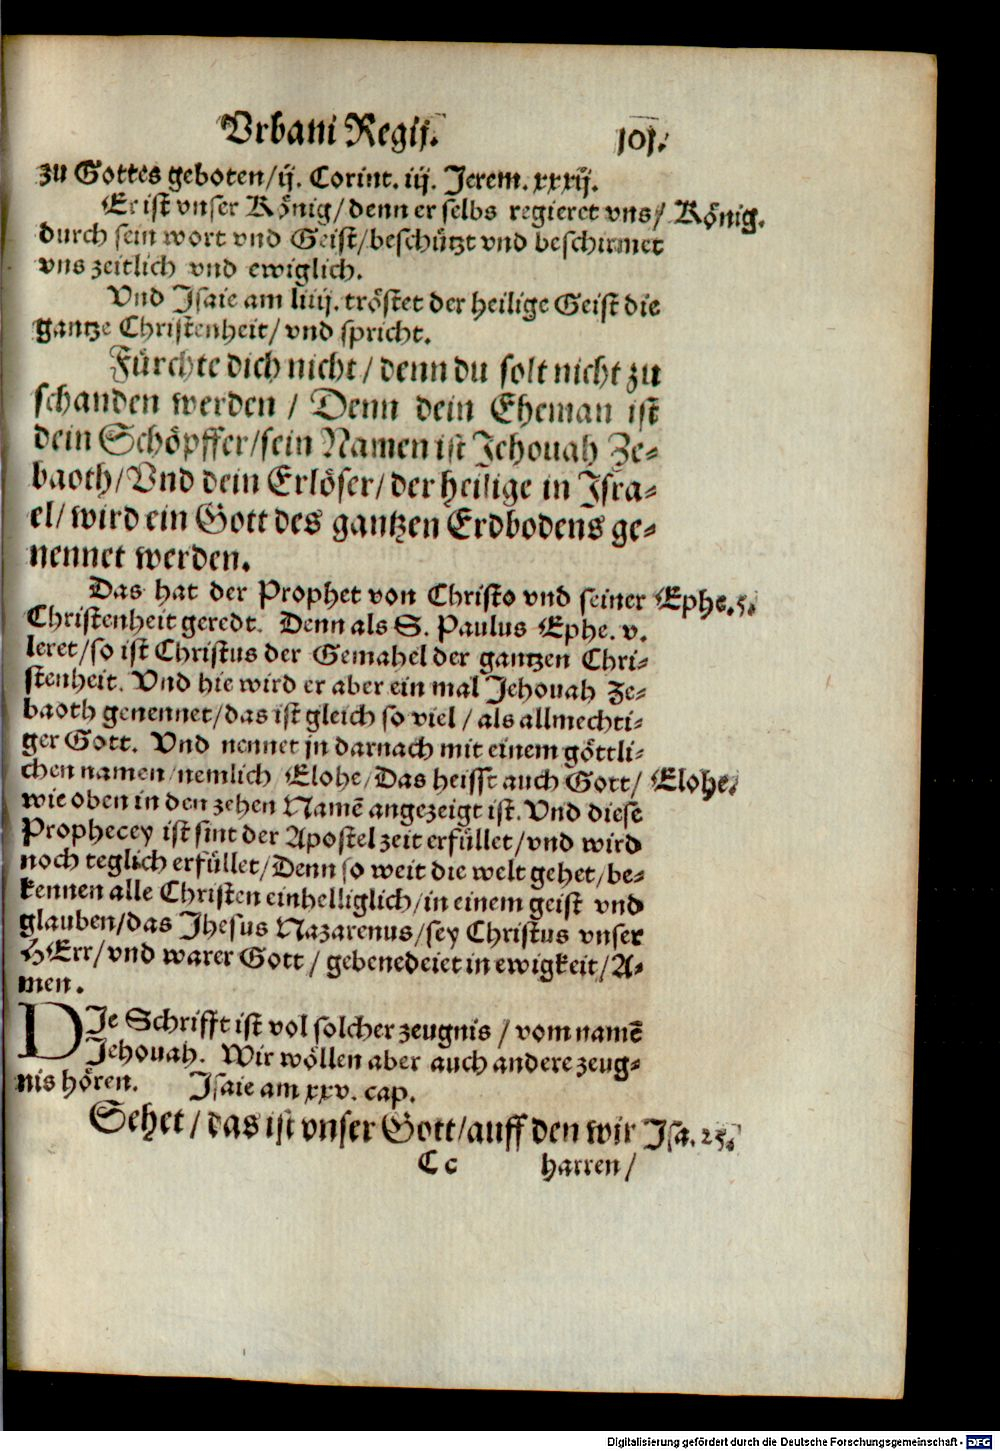 Vrbani Regij. 101.
zu Gottes geboten/ij. Corint. iij. Jerem. xxxij.
Er ist vnser König/denn er selbs regieret vns/ König.
durch sein wort vnd Geist/beschützt vnd beschirmet
vns zeitlich vnd ewiglich.
Vnd Jsaie am liiij. tröstet der heilige Geist die
gantze Christenheit/vnd spricht.
Fürchte dich nicht/denn du solt nicht zu
schanden werden/Denn dein Eheman ist
dein Schöpffer/sein Namen ist Jehouah Ze-
baoth/Vnd dein Erlöser/der heilige in Jsra-
el/wird ein Gott des gantzen Erdbodens ge-
nennet werden.
Das hat der Prophet von Christo vnd seiner Ephe.5.
Christenheit geredt. Denn als S. Paulus Ephe. v.
leret/so ist Christus der Gemahel der gantzen Chri-
stenheit. Vnd hie wird er aber ein mal Jehouah Ze-
baoth genennet/das ist gleich so viel/als allmechti-
ger Gott. Vnd nennet jn darnach mit einem göttli-
chen namen/nemlich Elohe/Das heisst auch Gott/ Elohe.
wie oben in den zehen Namē angezeigt ist. Vnd diese
Prophecey ist sint der Apostel zeit erfüllet/vnd wird
noch teglich erfüllet/Denn so weit die welt gehet/be-
kennen alle Christen einhelliglich/in einem geist vnd
glauben/das Jhesus Nazarenus/sey Christus vnser
HErr/vnd warer Gott/gebenedeiet in ewigkeit/A-
men.
DJe Schrifft ist vol solcher zeugnis/vom namē
Jehouah. Wir wöllen aber auch andere zeug-
nis hören. Jsaie am xxv. cap.
Sehet/das ist vnser Gott/auff den wir Jsa. 25.
Cc harren/
Digitalisierung gefördert durch die Deutsche Forschungsgemeinschaft - DFG